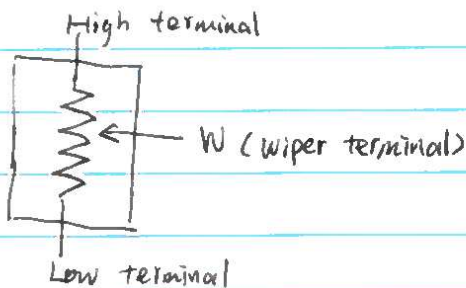 High terminal
W (wiper terminal)
Low terminal